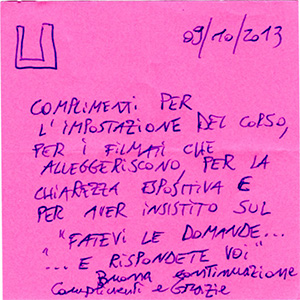 09/10/2013
COMPLIMENTI PER
L'IMPOSTAZIONE DEL CORSO,
PER I FILMATI CHE
ALLEGGERISCONO, PER LA
CHIAREZZA ESPOSITIVA E
PER AVER INSISTITO SUL
"FATEVI LE DOMANDE...
... E RISPONDETE VOI"
Buona continuazione
Complimenti e Grazie